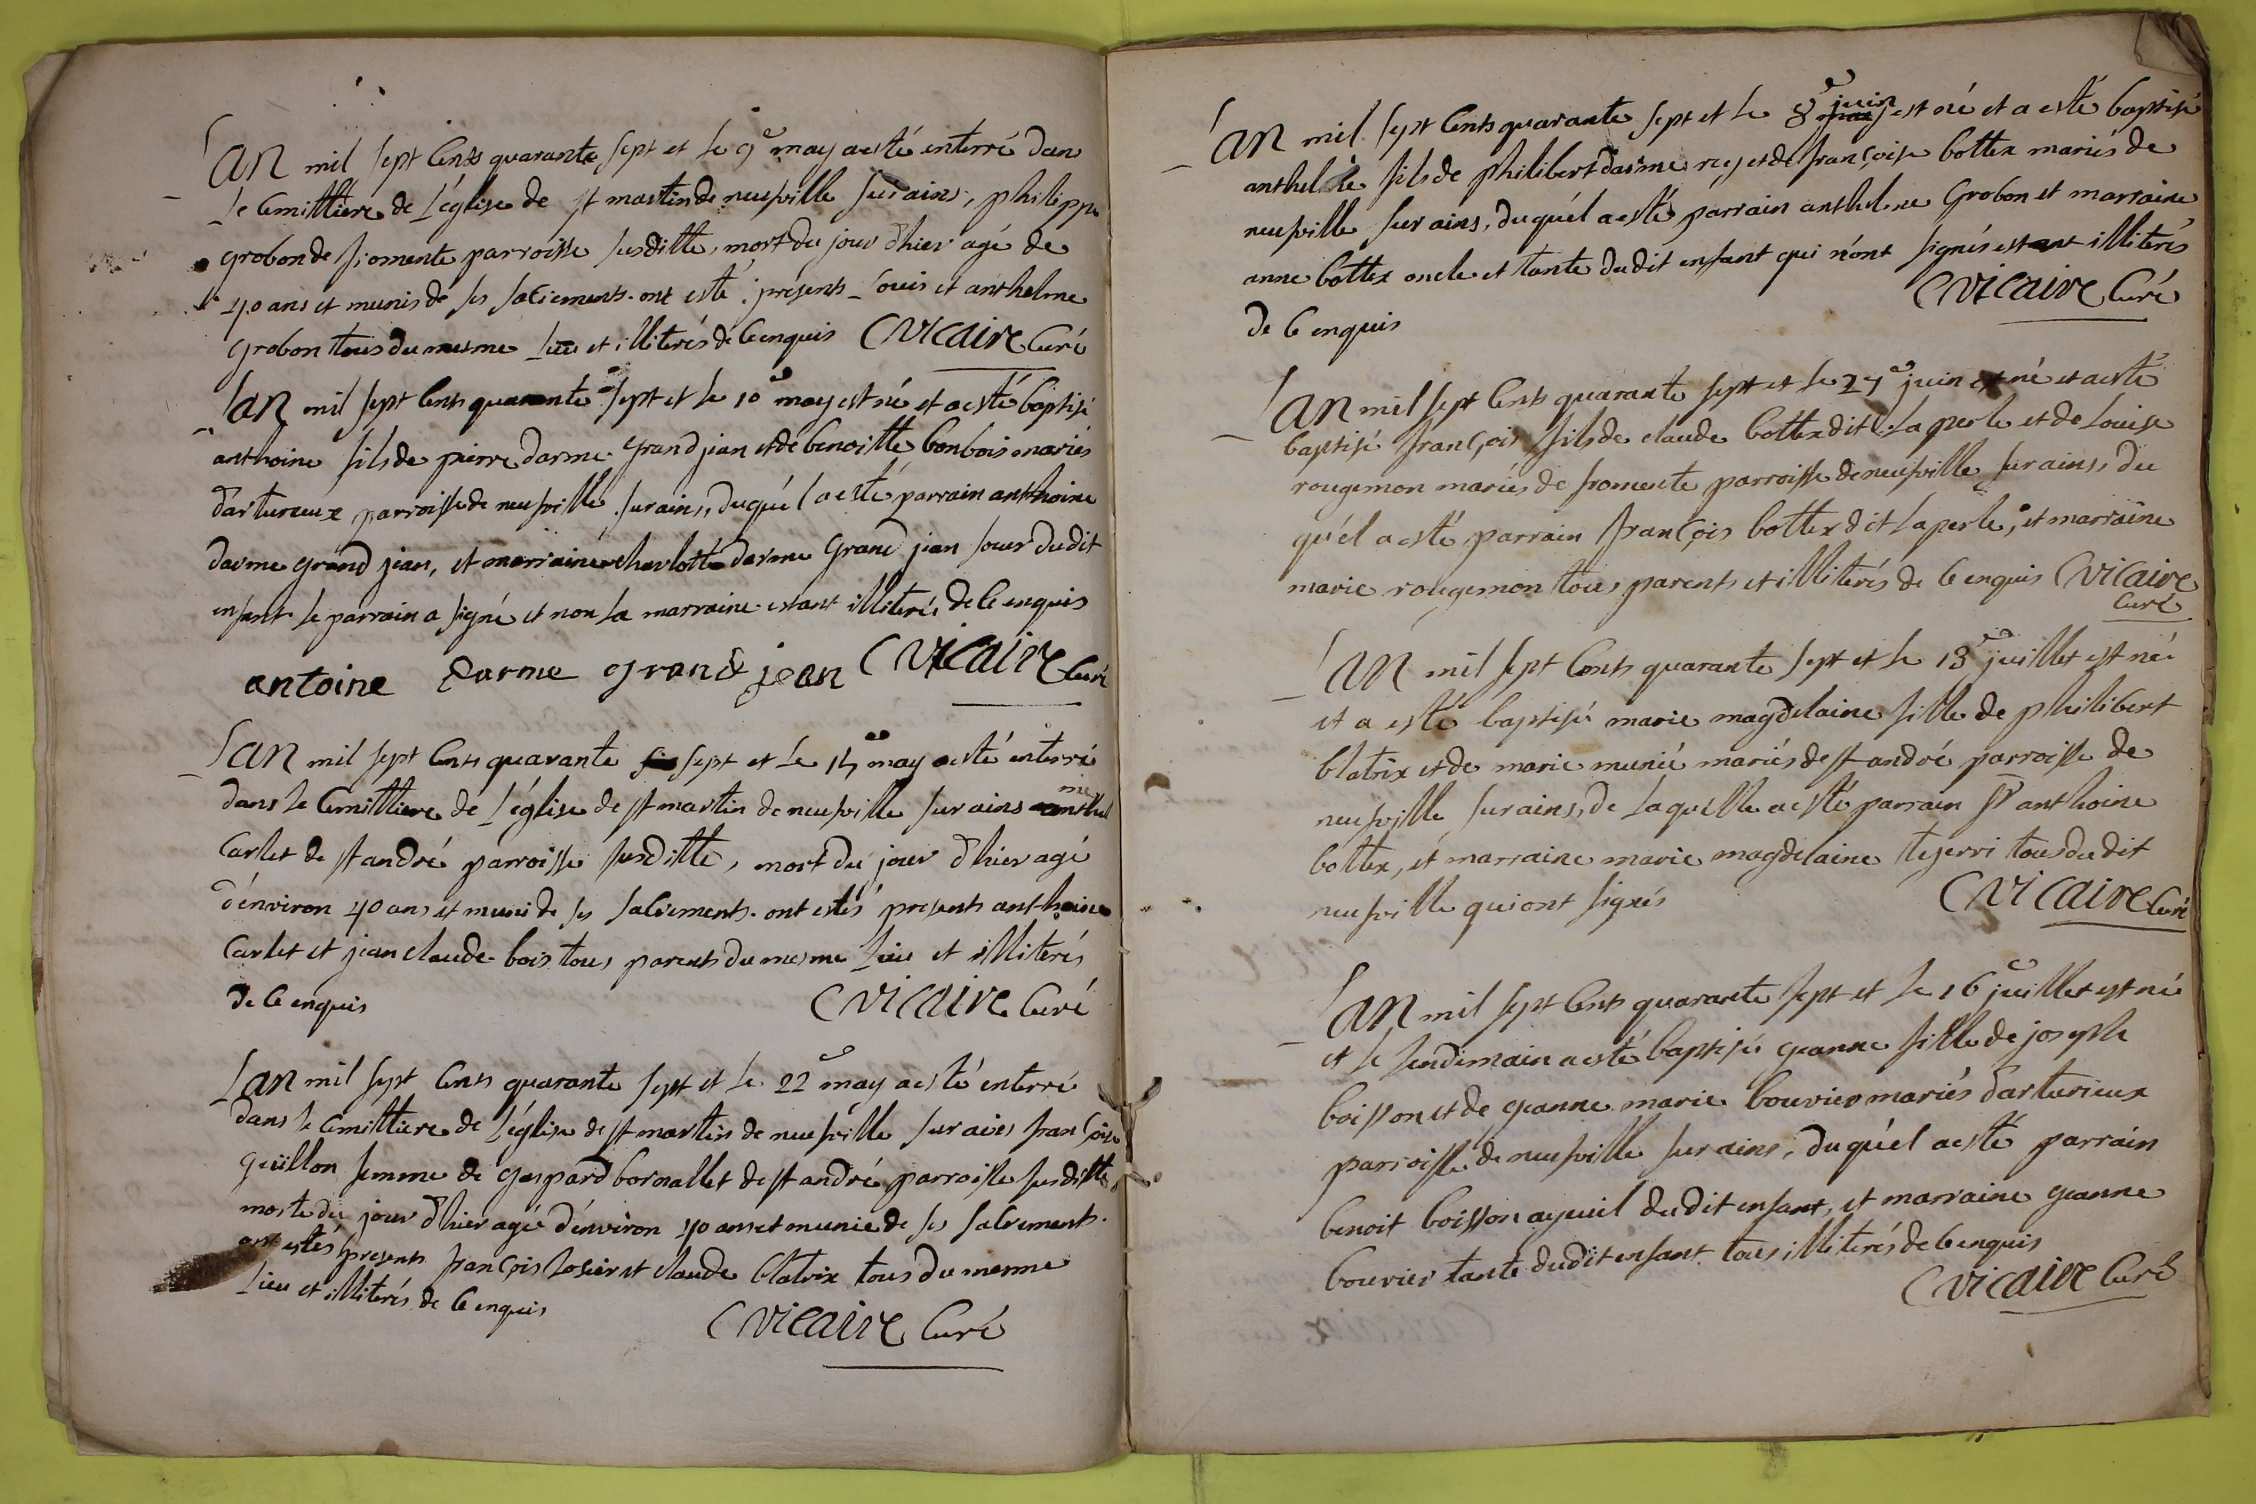 Lan mil sept Cents quarante sept et le 9e may a esté enterré dan
le Cemittiere de L'église de st martin de neufville sur ains, philippe
grobon de fromente parroisse susditte, mort du jour d'hier agé de
40 ans et munis de ses sacrements. ont esté présents Louis et anthelme
grobon tous du mesme Lieu et illiterés de ce enquis C Vicaire Curé
Lan mil sept Cents quarante sept et le 10e may est né et a esté baptisé
anthoine fils de pierre darme grand jean et de benoitte bonbois mariés
d'artureux parroisse de neufville sur ains, duquél a esté parrain anthoine
darme grand jean, et marraine charlotte darme Grand jean soeur dudit
enfant le parrain a signé et non la marraine estant illiterée de ce enquis
antoine darme grand jean C Vicaire Curé
Lan mil sept Cents quarante sept et le 14e may a esté enterré
dans le Cemittiere de L'église de st martin de neufville sur ains anthelme
Carlet de st andré parroisse susditte, mort du jour d'hier agé
d'énviron 40 ans et muni de ses sacrements. ont estés presents anthoine
Carlet et jean claude bois tous parents du mesme Lieu et illiterés
de ce enquis C Vicaire Curé
Lan mil sept Cents quarante sept et le 22e may a esté enterré
dans le Cemittiere de L'église de st martin de neufville sur ains françoise
guillon femme de gaspard bornallet de st andré parroisse susditte,
morte du jour d'hier agée d'énviron 40 ans et munie de ses sacrements.
ont estés presents françois losier et claude blatrix tous du mesme
Lieu et illiterés de ce enquis
C Vicaire Curé
Lan mil sept Cents quarante sept et le 8e juin est né et a esté baptisé
anthelme fils de philibert darme rey et de françoise bottex mariés de
neufville sur ains, duquél a esté parrain anthelme Grobon et marraine
anne bottex oncle et tante dudit enfant qui n'ont signés estant illiterés
de ce enquis C Vicaire Curé
Lan mil sept Cents quarante sept et le 27e juin est né et a esté
baptisé françois fils de claude bottex dit La perle et de Louise
rougemon mariés de fromente parroisse de neufville sur ains, du
quél a esté parrain françois bottex dit La perle, et marraine
marie rougemon tous parents et illiterés de ce enquis C Vicaire
Curé
Lan mil sept Cents quarante sept et le 13e juillet est née
et a esté baptisé marie magdelaine fille de philibert
blatrix et de marie munié mariés de st andré parroisse de
neufville sur ains, de Laquelle a esté parrain sr anthoine
bottex, et marraine marie magdelaine teyerri tous du dit
neufville qui ont signés C Vicaire Curé
Lan mil sept Cents quarante sept et le 16e juillet est né
et le Lendemain a esté baptisé geanne fille de joseph
boisson et de geanne marie bouvier mariés d'arturieux
parroisse de neufville sur ains, duquél a esté parrain
benoit boisson ayeuil du dit enfant, et marraine geanne
bouvier tante du dit enfant tous illiterés de ce enquis
C Vicaire Curé